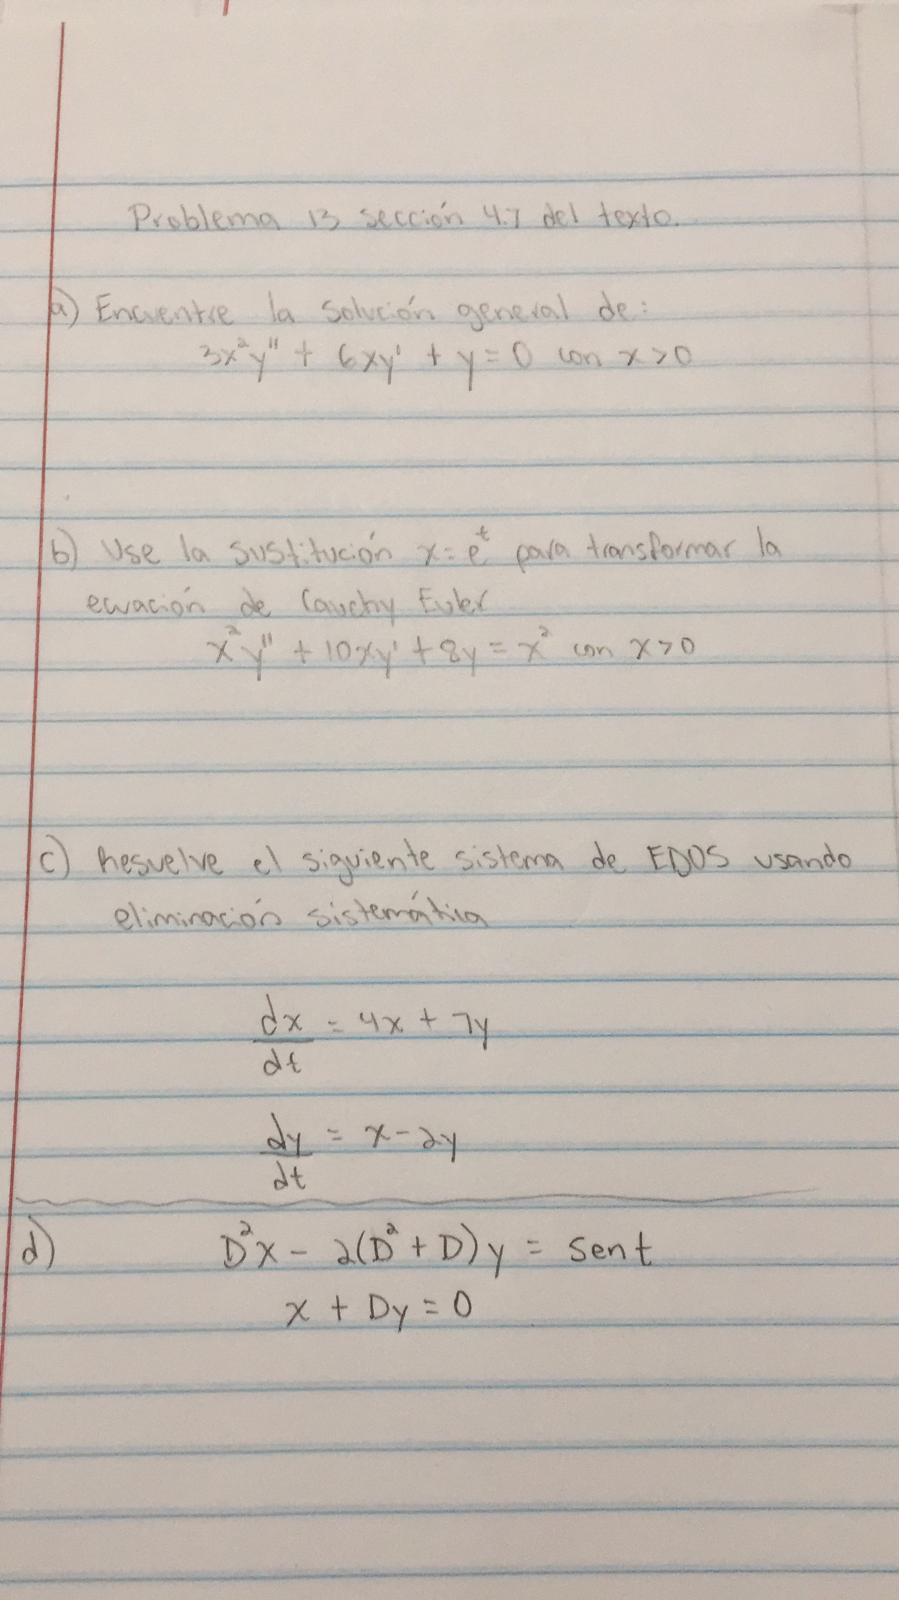 Problema 13 sección 4.7 del texto.
a) Encuentre la solución general de:
3x²y'' + 6xy' + y = 0 con x>0
b) Use la sustitución x = eᵗ para transformar la
ecuación de Cauchy Euler
x²y'' + 10xy' + 8y = x² con x>0
c) Resuelve el siguiente sistema de EDOS usando
eliminación sistemática
dx/dt = 4x + 7y
dy/dt = x - 2y
d) D²x - 2(D² + D)y = sent
x + Dy = 0